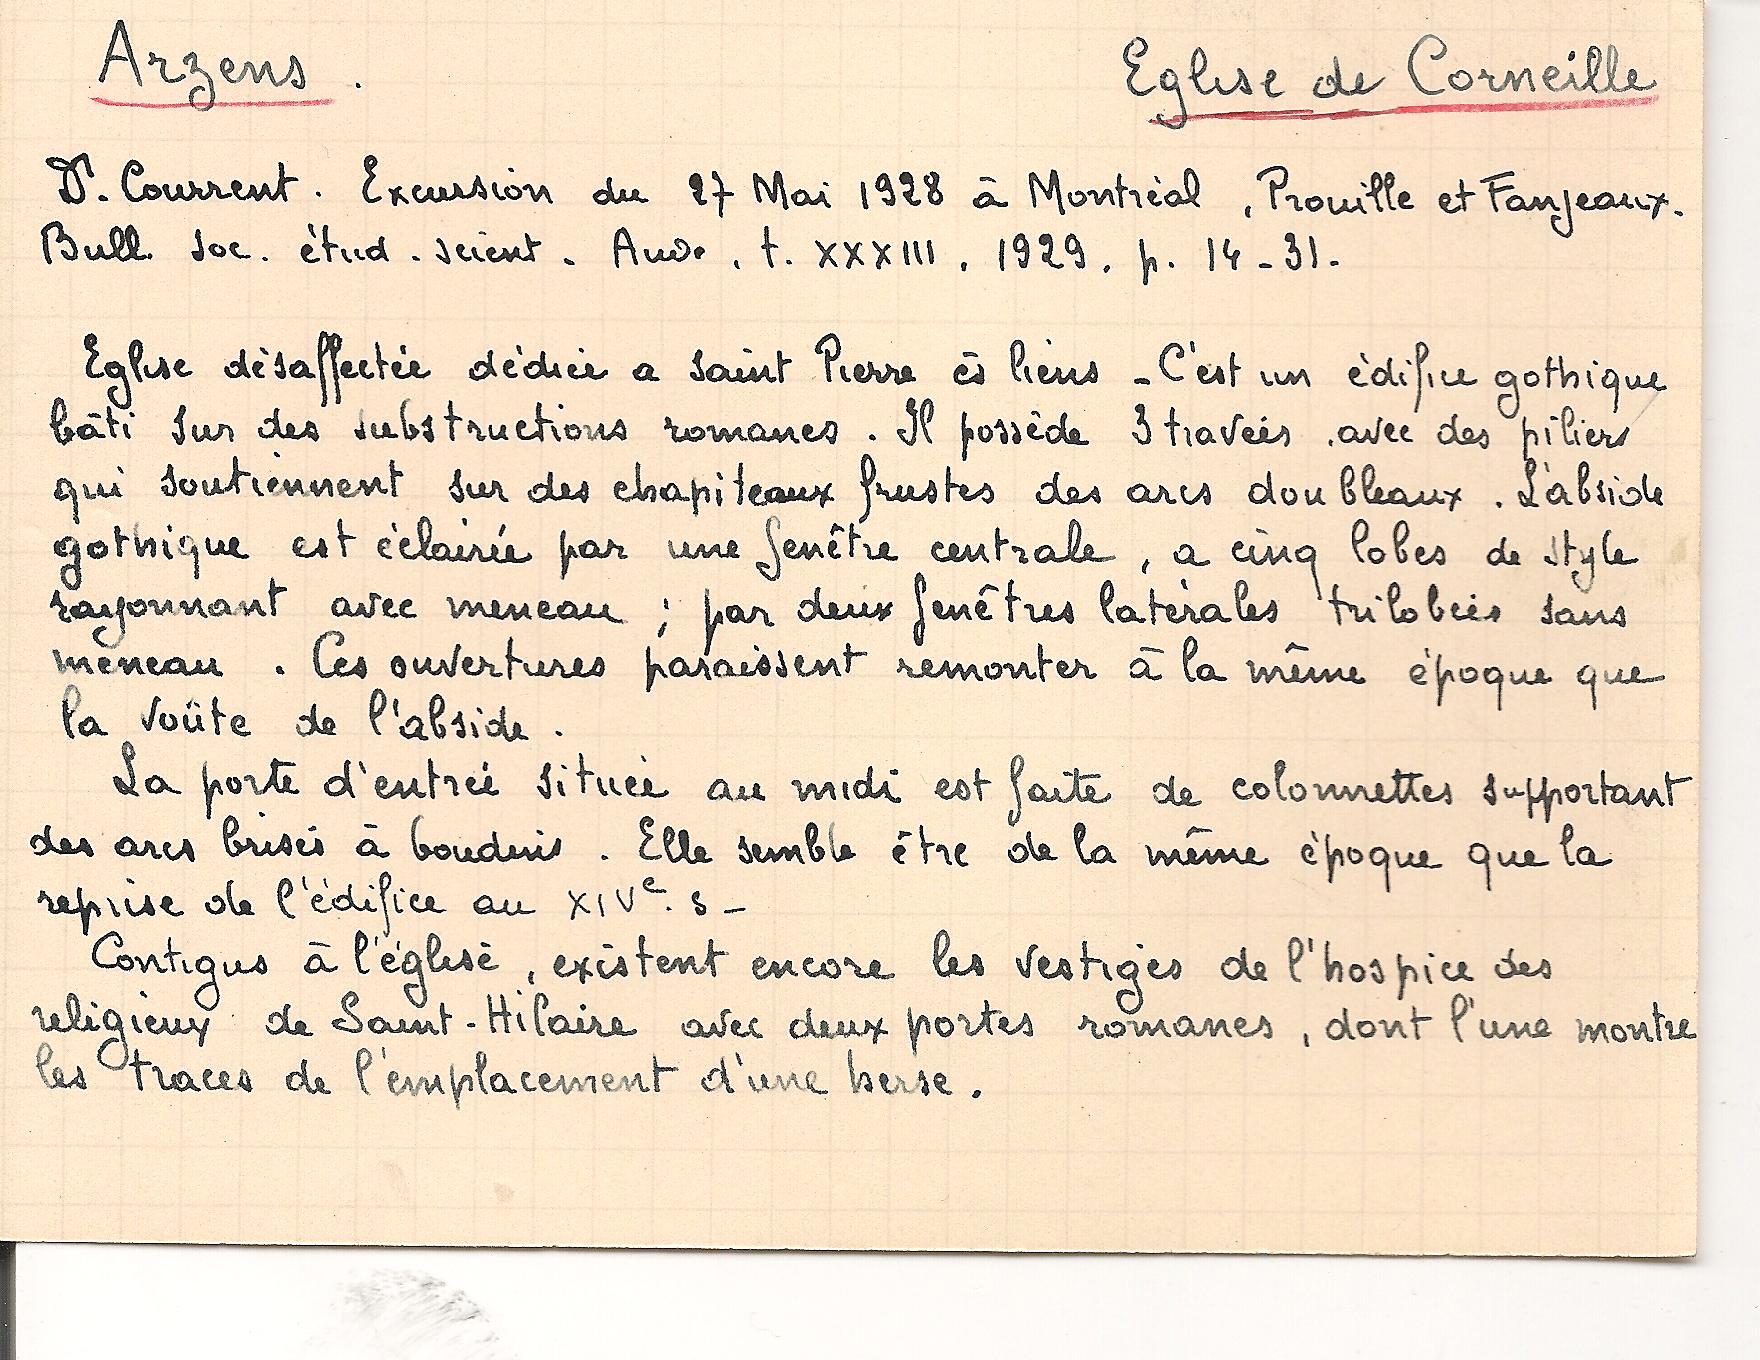 Arzens. Eglise de Corneille
Dr. Courrent. Excursion du 27 Mai 1928 à Montréal, Prouille et Fanjeaux.
Bull. soc. étud. scient. Aude, t. XXXIII, 1929, p. 14-31.
Eglise désaffectée dédiée a saint Pierre ès liens - C'est un édifice gothique
bâti sur des substructions romanes. Il possède 3 travées avec des piliers
qui soutiennent sur des chapiteaux frustes des arcs doubleaux. L'abside
gothique est éclairée par une fenêtre centrale, a cinq lobes de style
rayonnant avec meneau ; par deux fenêtres latérales trilobées sans
meneau. Ces ouvertures paraissent remonter à la même époque que
la voûte de l'abside.
La porte d'entrée située au midi est faite de colonnettes supportant
des arcs brisés à boudins. Elle semble être de la même époque que la
reprise de l'édifice au XIVe. s-
Contigus à l'église, existent encore les vestiges de l'hospice des
religieux de Saint-Hilaire avec deux portes romanes, dont l'une montre
les traces de l'emplacement d'une herse.